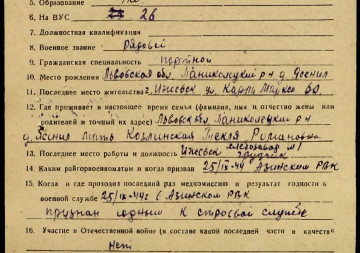 5. Образование
6. На ВУС 26
7. Должностная квалификация
8. Военное звание рядовой
9. Гражданская специальность портной
10. Место рождения Львовская обл. Паниколецкий р-н д. Ясенил
11. Последнее место жительства г. Ижевск ул. Карла Маркса 60.
12. Где проживает в настоящее время семья (фамилия, имя и отчество жены или
родителей и точный их адрес) Львовская обл. Паниколецкий р-н
д. Ясинил мать Козлинская Текля Романовна
13. Последнее место работы и должность Ижевск №1 грузчик
14. Каким райгорвоенкоматом и когда призван 25/IX-44 г Азинском РВК
15. Когда и где проходил последний раз медкомиссию и результат годности к
военной службе 25/IX-44 г в Азинском РВК
признан годным к строевой службе
16. Участие в Отечественной войне (в составе какой последней части в качестве
Нет